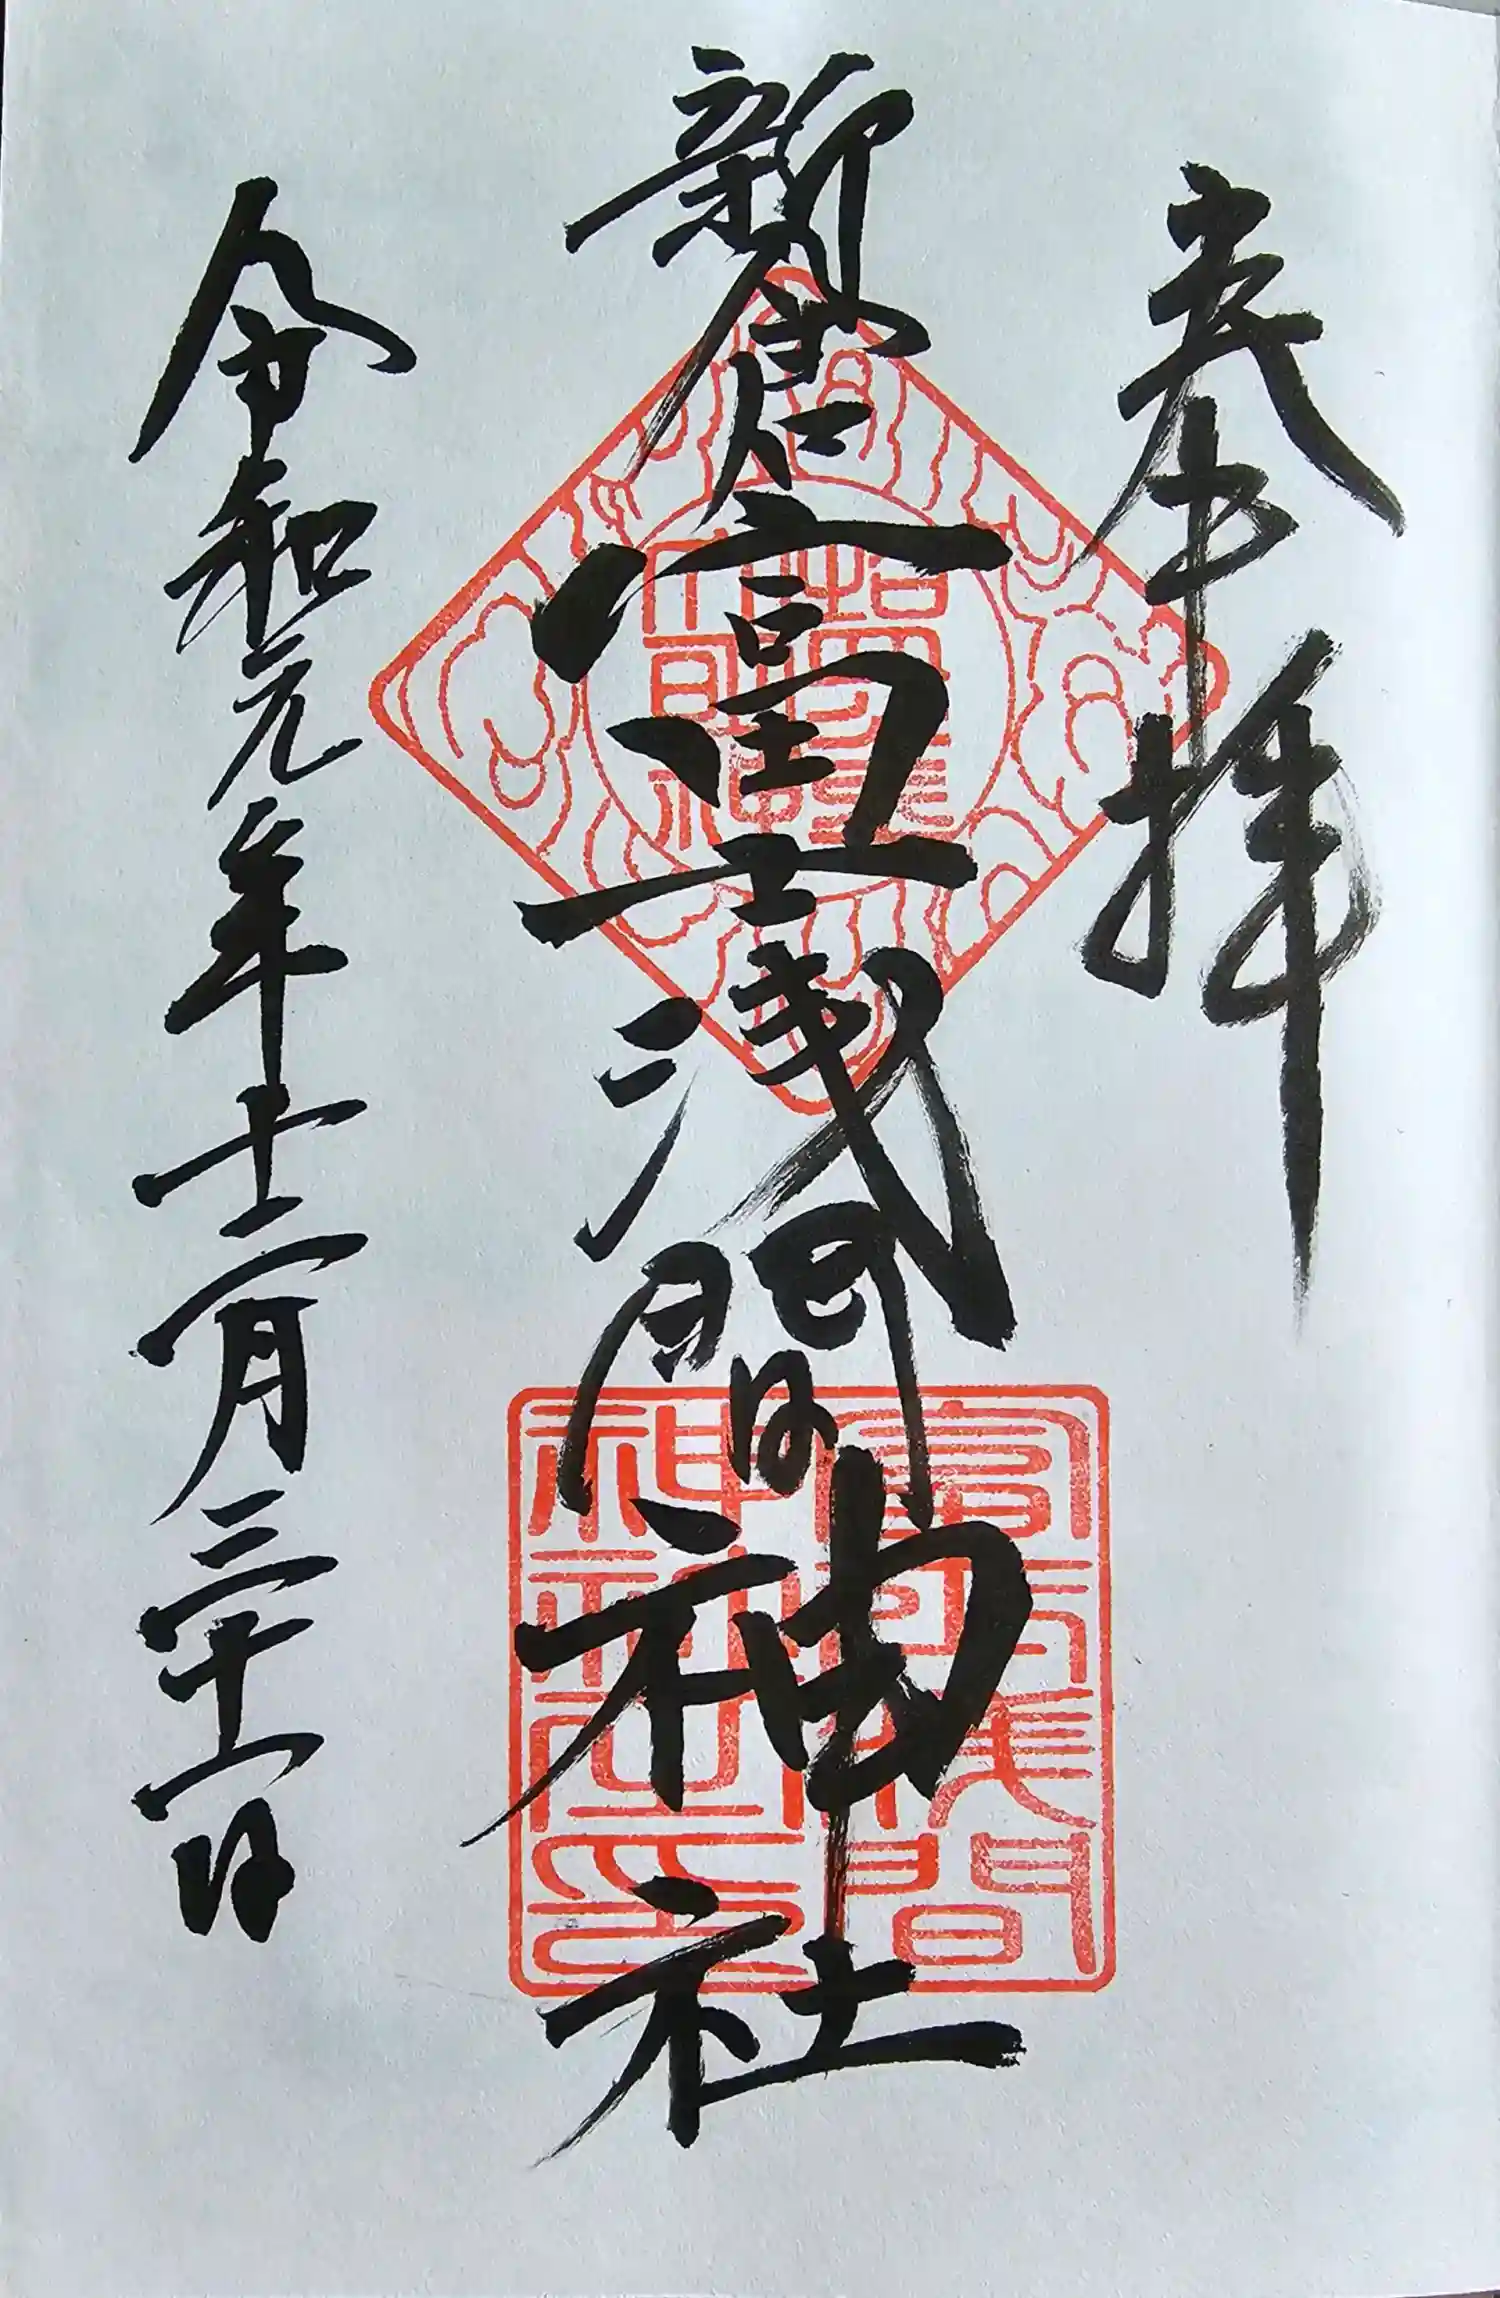 奉拝
新倉富士浅間神社
富士浅間
神社之印
令和元年十二月三十一日